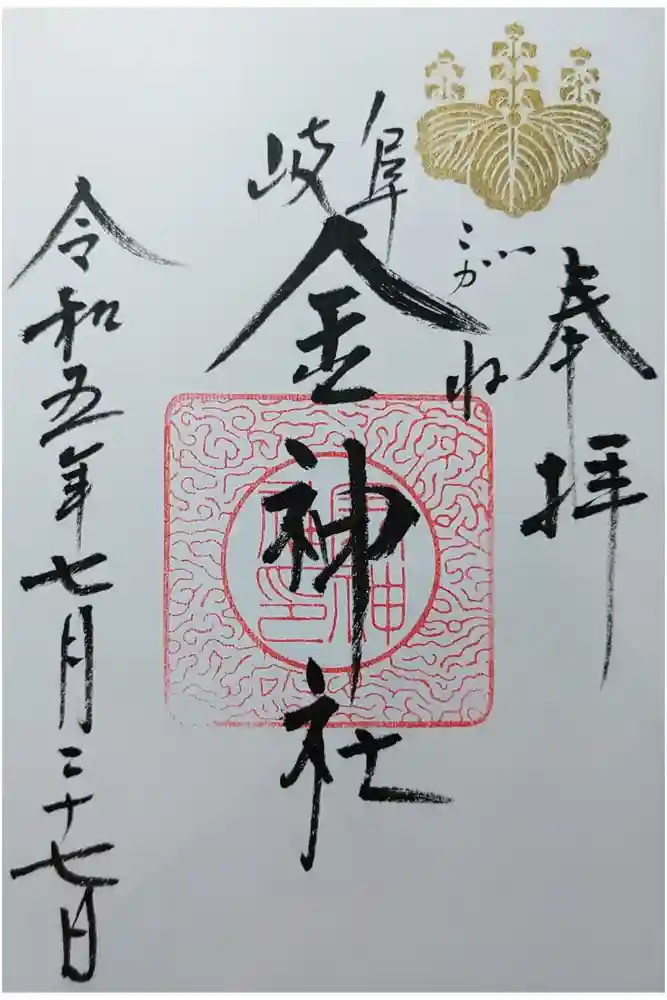 奉拝
こがね
岐阜
金神社
令和五年七月二十七日